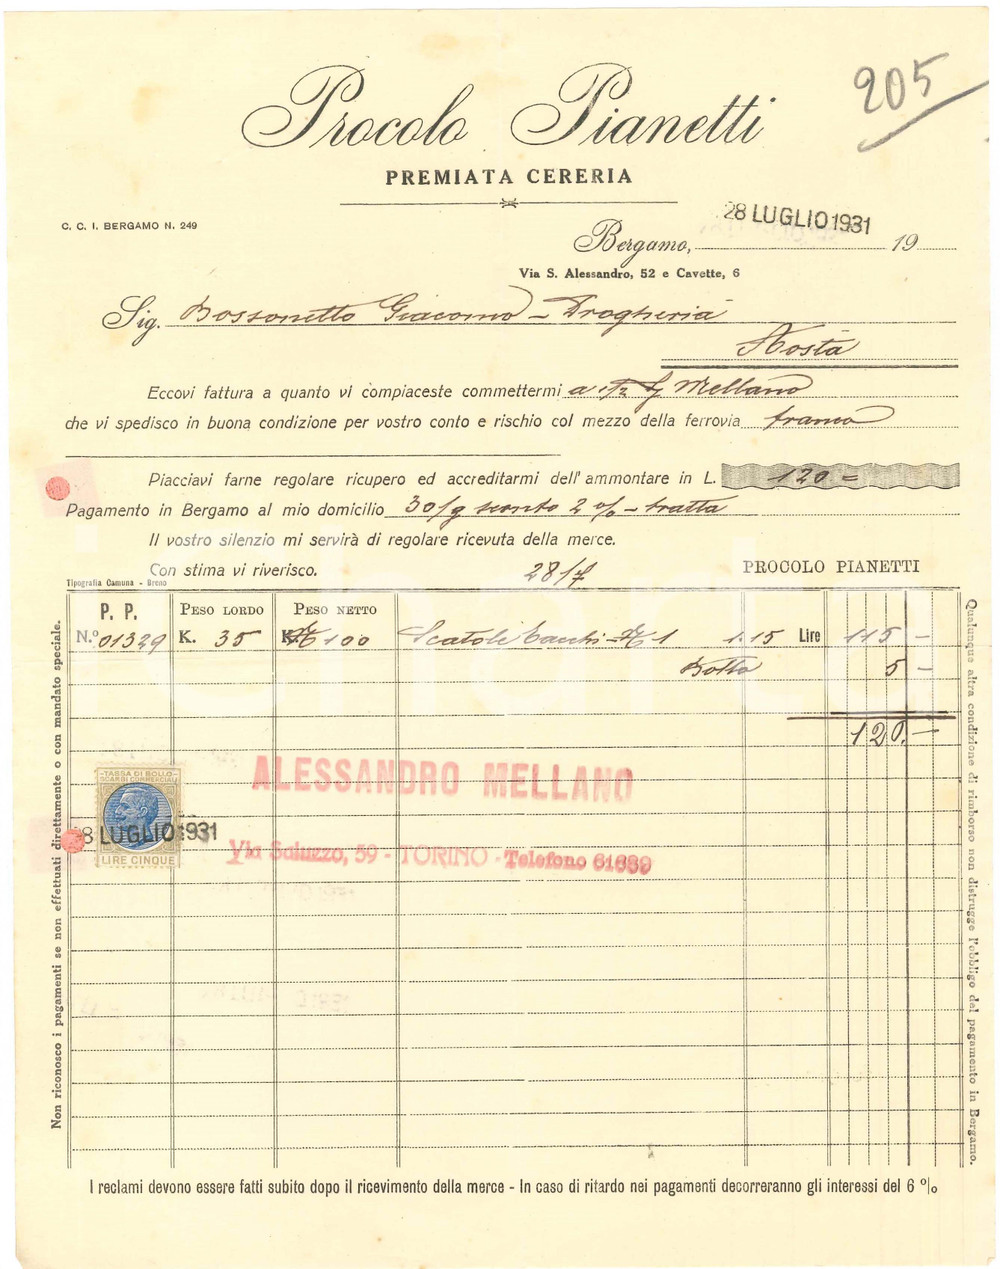 205
Procolo Pianetti
PREMIATA CERERIA
C. C. I. BERGAMO N. 249
28 LUGLIO 1931
Bergamo, 19
Via S. Alessandro, 52 e Cavette, 6
Sig. Bossonetto Giacomo - Drogheria
Aosta
Eccovi fattura a quanto vi compiaceste commettermi a Mellano
che vi spedisco in buona condizione per vostro conto e rischio col mezzo della ferrovia franco
Piacciavi farne regolare ricupero ed accreditarmi dell'ammontare in L. 120 =
Pagamento in Bergamo al mio domicilio 30/g sconto 2 % - tratta
Il vostro silenzio mi servirà di regolare ricevuta della merce.
Con stima vi riverisco. 28/7 PROCOLO PIANETTI
Tipografia Camuna - Breno
P. P. PESO LORDO PESO NETTO
N.º 01329 K. 35 K. N 100 Scatole Tacchi - N 1 1.15 Lire 115 -
Bollo 5 -
120. -
TASSA DI BOLLO
SCAMBI COMMERCIALI
28 LUGLIO 1931
LIRE CINQUE
ALESSANDRO MELLANO
Via Saluzzo, 59 - TORINO - Telefono 61639
Non riconosco i pagamenti se non effettuati direttamente o con mandato speciale.
Qualunque altra condizione di rimborso non distrugge l'obbligo del pagamento in Bergamo.
I reclami devono essere fatti subito dopo il ricevimento della merce - In caso di ritardo nei pagamenti decorreranno gli interessi del 6 %